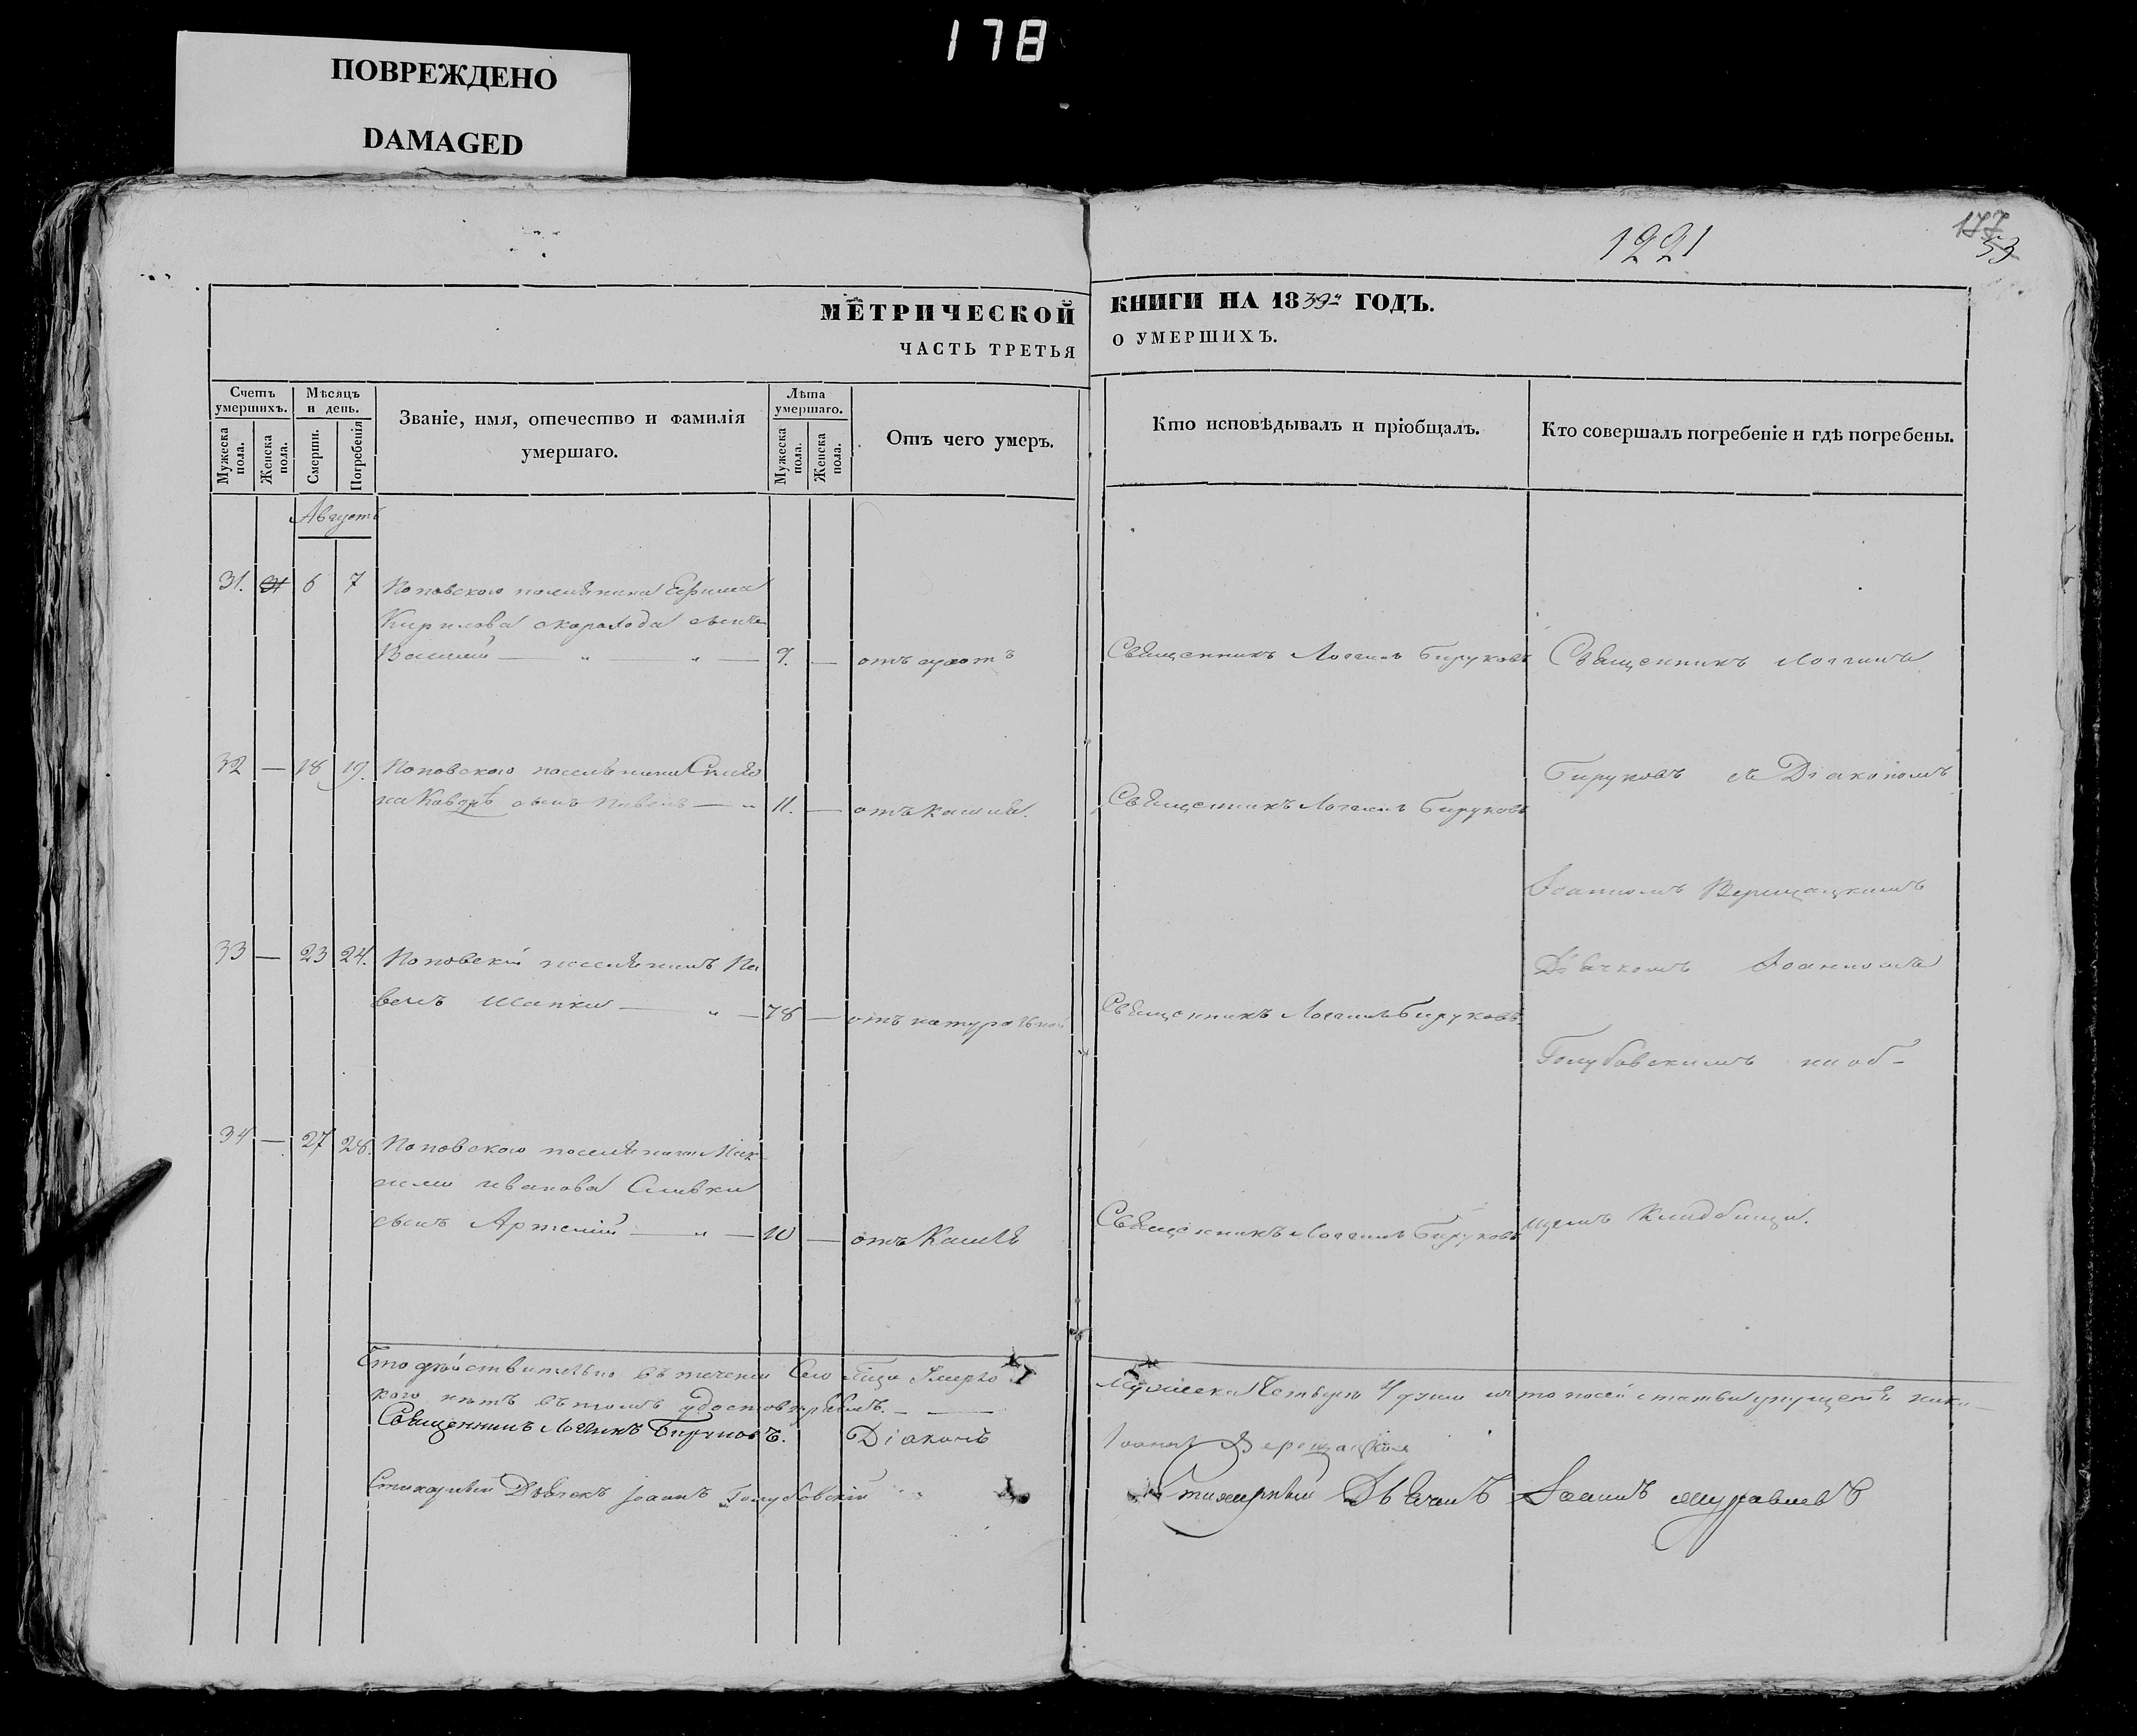 178
ПОВРЕЖДЕНО
DAMAGED
1221
177
53
МЕТРИЧЕСКОЙ КНИГИ НА 1839й ГОДЪ.
ЧАСТЬ ТРЕТЬЯ О УМЕРШИХЪ.
Счетъ умершихъ.
Мужеска пола.
Женска пола.
Мѣсяцъ и день.
Смерти.
Погребенія
Званіе, имя, отечество и фамилія умершаго.
Лѣта умершаго.
Мужеска пола.
Женска пола.
Отъ чего умеръ.
Кто исповѣдывалъ и пріобщалъ.
Кто совершалъ погребеніе и гдѣ погребены.
Августъ
31. 6 7 Поповского поселянина Ефима
Кирилова скорохода сынъ
Василий — " — " — 9. — отъ
Священникъ Логгинъ Бируковъ
Священникъ Логгинъ
32 — 18 19. Поповского поселянина
сынъ Павелъ — " 11. — отъ кашля.
Священникъ Логгинъ Бируковъ
Бируковъ съ Діакономъ
Іоанномъ Верещацкимъ
33 — 23 24. Поповскій поселянинъ Па
велъ Шапка — " — 78 — отъ натуральной
Священникъ Логгинъ Бируковъ.
Дьячкомъ Іоанномъ
Голубовскимъ на об-
34 — 27 28. Поповского поселянина Мак
сима иванова Сливки
сынъ Артемій — " — 10 — отъ Кашля
Священникъ Логгинъ Бируковъ
щемъ Кладбищи.
Что действительно въ течении Сего Месяца Умерло
Мужеска Четыре души и что по сей статьи упущения ника-
кого нетъ въ томъ удостоверяемъ. —
Священникъ Логинъ Бируковъ. Діаконъ
Іоаннъ Верещацкий
Стихарный Дьячекъ Іоаннъ Голубовскій
Стихарный Дьячекъ Іоаннъ Муравиевъ